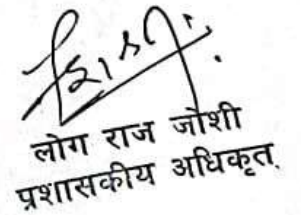 लोग राज जोशी
प्रशासकीय अधिकृत